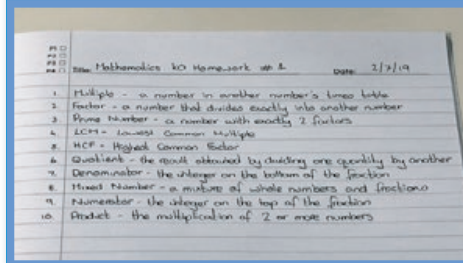 P1
P2
P3
P4 Title: Mathematics KO Homework #1 Date: 2/7/19
1. Multiple - a number in another number's times table
2. Factor - a number that divides exactly into another number
3. Prime Number - a number with exactly 2 factors
4. LCM - Lowest Common Multiple
5. HCF - Highest Common Factor
6. Quotient - the result obtained by dividing one quantity by another
7. Denominator - the integer on the bottom of the fraction
8. Mixed Number - a mixture of whole numbers and fractions
9. Numerator - the integer on the top of the fraction
10. Product - the multiplication of 2 or more numbers